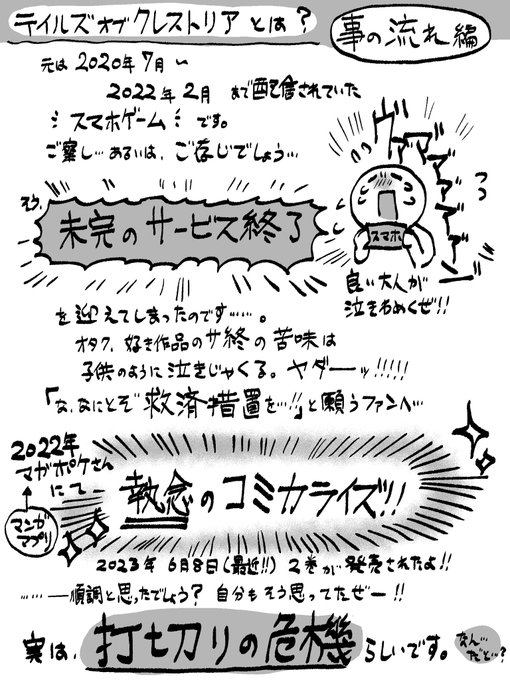 テイルズオブクレストリアとは？
事の流れ編
元は2020年7月〜
2022年2月まで配信されていた
スマホゲームです。
ご察し…あるいは、ご存じでしょう…
ヴァアアアアアーーッッ
スマホ
そう、
未完のサービス終了
良い大人が
泣きわめくぜ!!
を迎えてしまったのです……。
オタク、好き作品のサ終の苦味は
子供のように泣きじゃくる。ヤダーッ!!!!!
「な、なにとぞ救済措置を…!!」と願うファンへ…
2022年
マガポケさん
にて
マンガ
アプリ
執念のコミカライズ!!
2023年6月8日(最近!!)2巻が発売されたよ!!
……—順調と思ったでしょう？自分もそう思ってたぜー!!
実は、打ち切りの危機らしいです。
なん…
だと…？